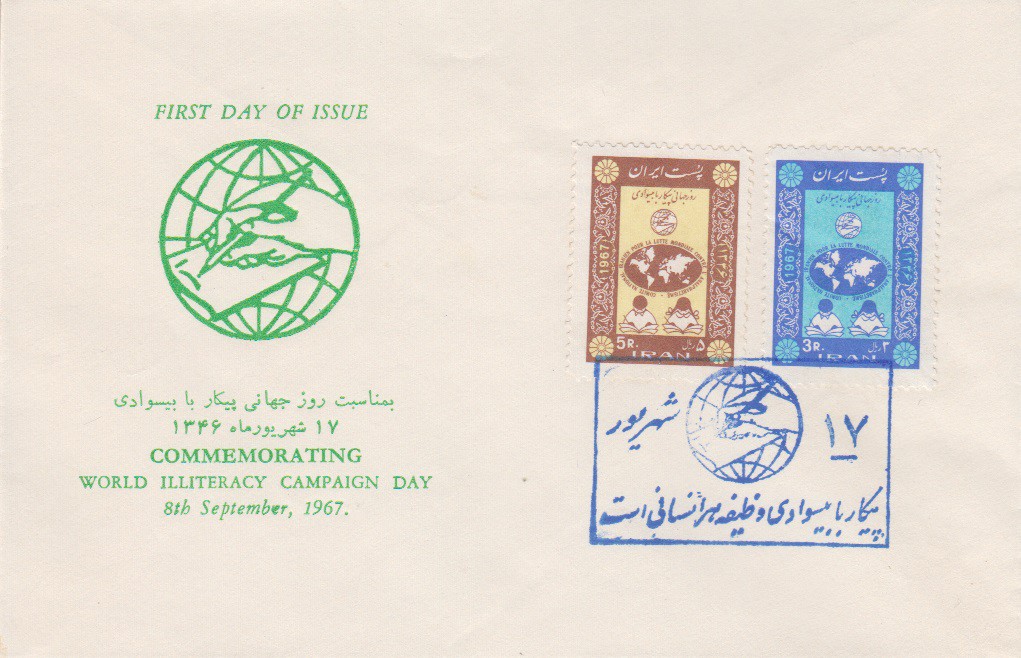 FIRST DAY OF ISSUE
بمناسبت روز جهانی پیکار با بیسوادی
۱۷ شهریورماه ۱۳۴۶
COMMEMORATING
WORLD ILLITERACY CAMPAIGN DAY
8th September, 1967.
پست ایران
روز جهانی پیکار با بیسوادی
1967
۱۳۴۶
POUR LA LUTTE MONDIALE
5R.
۵ ریال
IRAN
پست ایران
روز جهانی پیکار با بیسوادی
1967
۱۳۴۶
POUR LA LUTTE MONDIALE
3R.
۳ ریال
IRAN
۱۷
شهریور
پیکار با بیسوادی وظیفه هر انسانی است